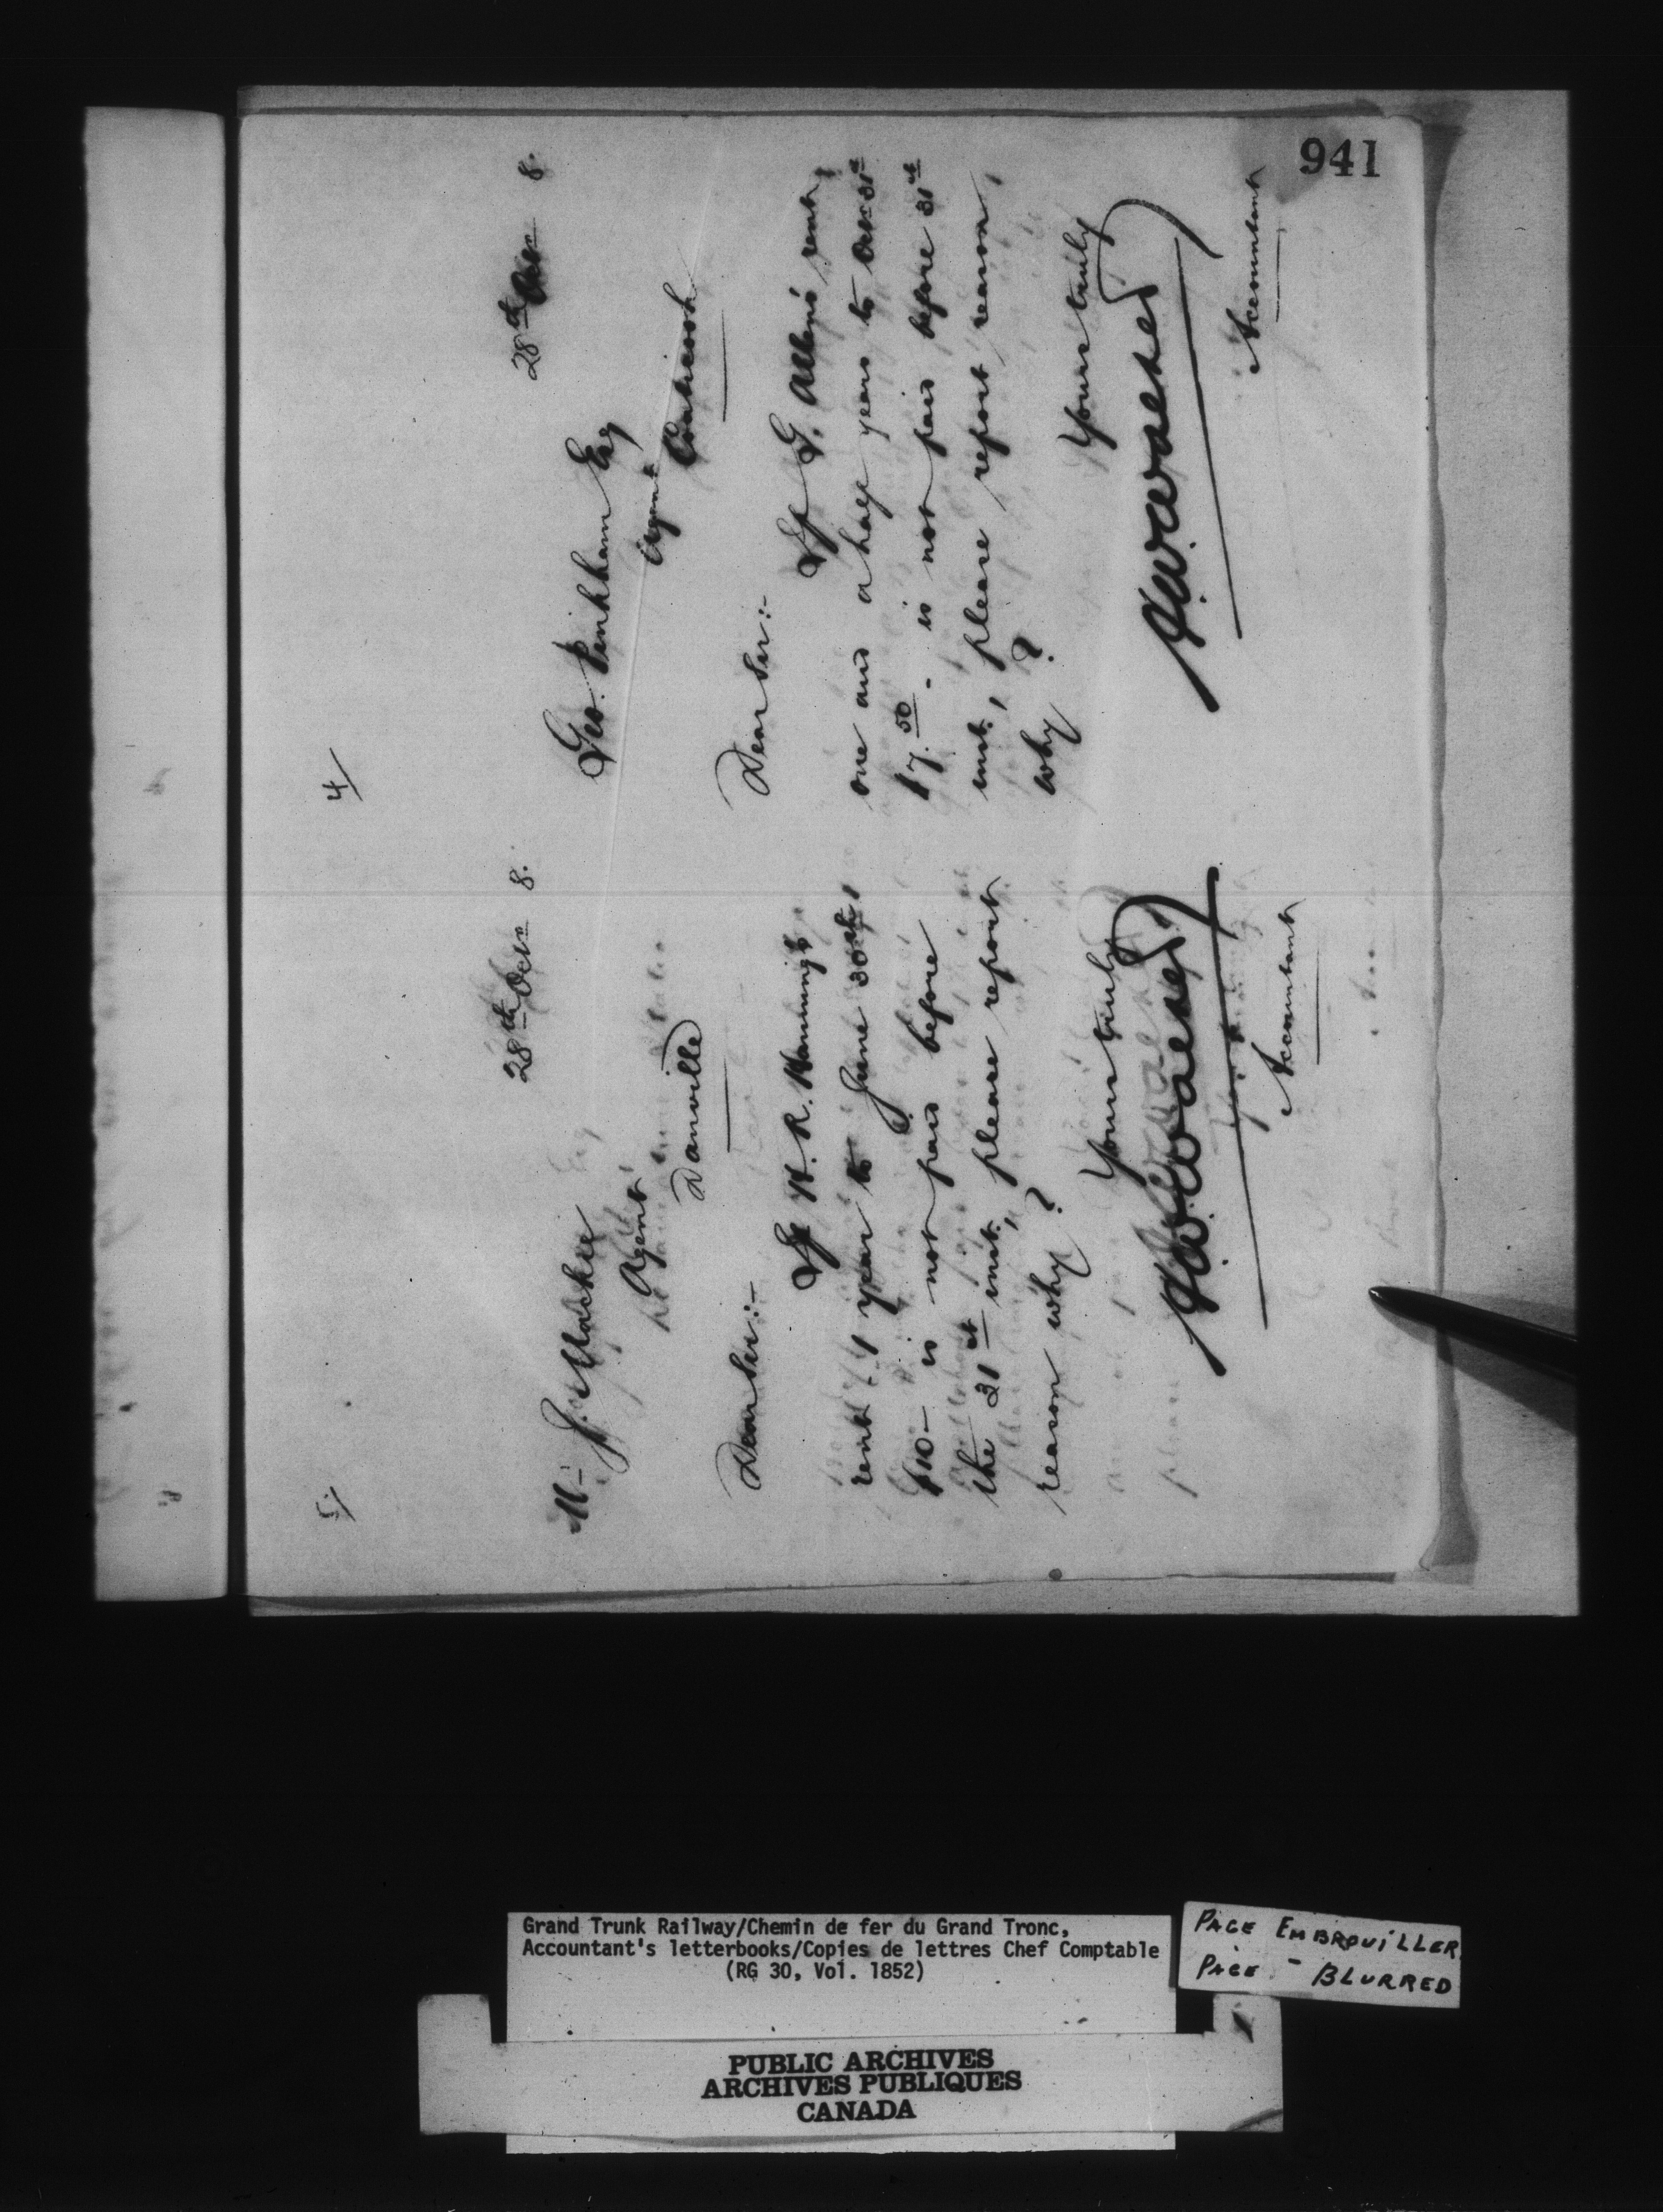 941
5/
28th Octr 8.
Mr J. Mackie
Agent
Danville
Dear Sir:-
If H. R. Hanning's
rent - 1 year to June 30th,
$10- is not paid before
the 31st inst, please report
reason why?
Yours truly
Accountant
4/
28th Octr 8.
Geo. Pinkham Esq
Agent
Coaticook
Dear Sir:-
If G. Allen's rent,
one and a half years to Octr 31st
17.50 - is not paid before 31st
inst, please report reason,
why?
Yours truly
Accountant
Grand Trunk Railway/Chemin de fer du Grand Tronc,
Accountant's letterbooks/Copies de lettres Chef Comptable
(RG 30, Vol. 1852)
PAGE EMBROUILLER
PAGE - BLURRED
PUBLIC ARCHIVES
ARCHIVES PUBLIQUES
CANADA